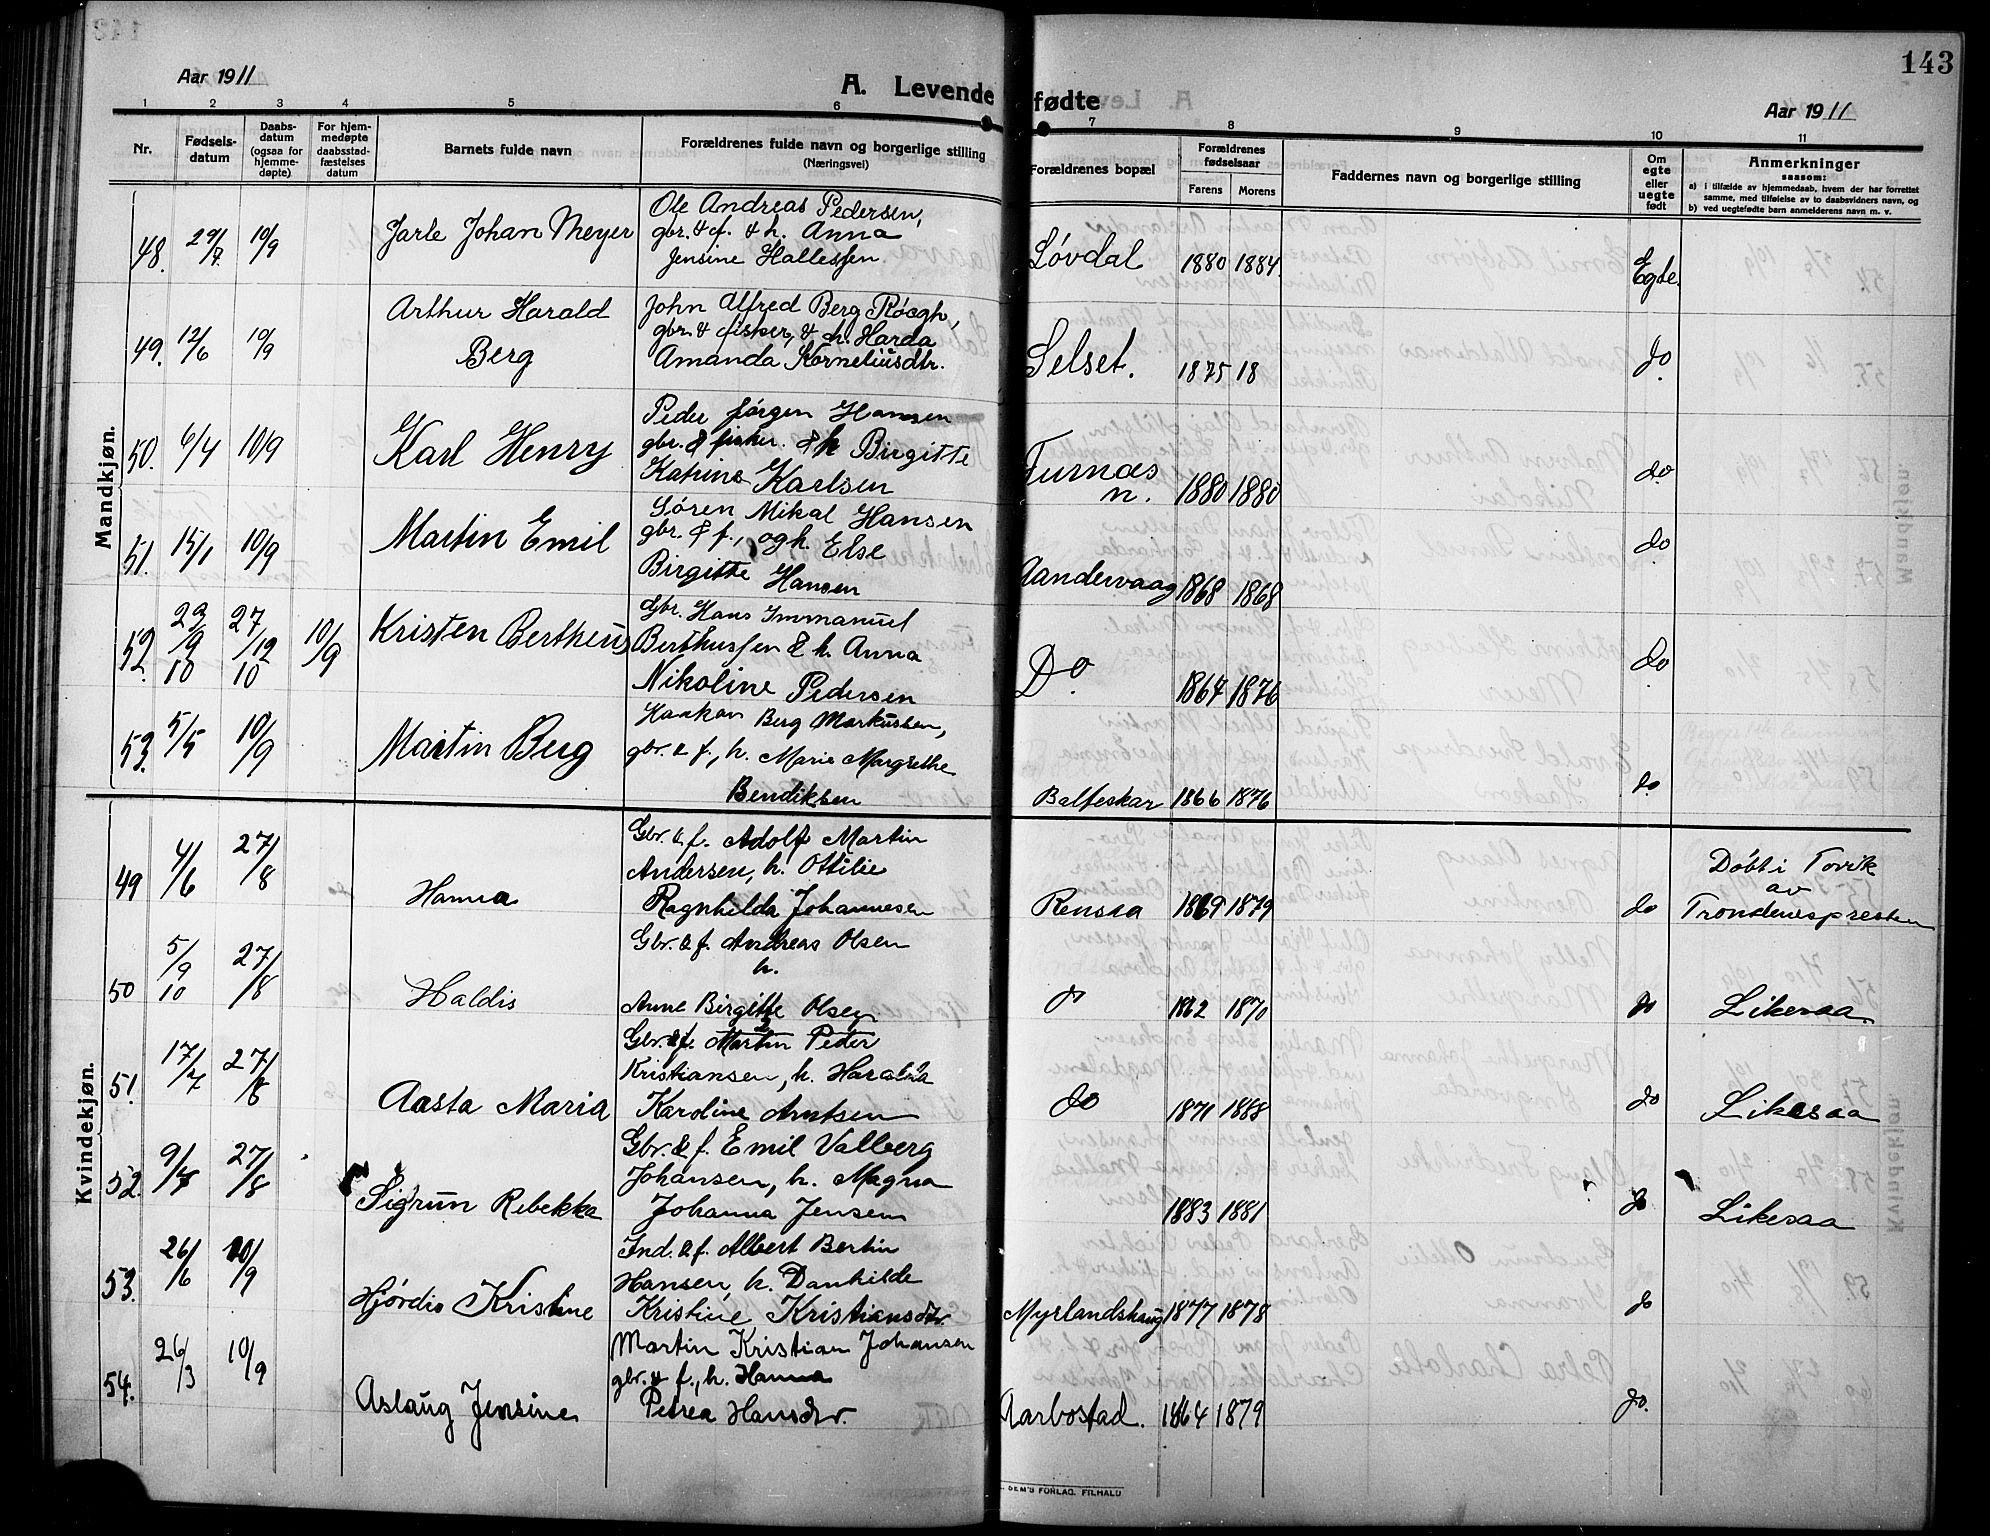 143
Aar 1911
A. Levende fødte
Aar 1911
1 2 3 4 5 6 7 8 9 10 11
Nr.
Fødsels-
datum
Daabs-
datum
(ogsaa for
hjemme-
døpte)
For hjem-
medøpte
daabsstad-
fæstelses
datum
Barnets fulde navn
Forældrenes fulde navn og borgerlige stilling
(Næringsvei)
Forældrenes bopæl
Forældrenes
fødselsaar
Farens Morens
Faddernes navn og borgerlige stilling
Om
egte
eller
uegte
født
Anmerkninger
saasom:
a) i tilfælde av hjemmedaab, hvem der har forrettet
samme, med tilføielse av to daabsvidners navn, og
b) ved uegtefødte barn anmelderens navn m. v.
Mandkjøn.
48. 29/7. 10/9 Jarle Johan Meyer
Ole Andreas Pedersen,
gbr. & f. & h. Anna
Jensine Hallessen.
Løvdal 1880 1884 Egte.
49. 12/6 10/9 Arthur Harald
Berg
John Alfred Berg Røogh,
gbr. & fisker, & h. Harda
Amanda Korneliusdtr.
Selset. 1875 18 do
50. 6/4 10/9 Karl Henry
Peder Jørgen Hansen
gbr. & fisker. & h Birgitte
Katrine Karlsen
Furnæs
n. 1880 1880 do
51. 15/1 10/9 Martin Emil
Søren Mikal Hansen
gbr. & f., og h. Else
Birgitte Hansen
Aandervaag 1868 1868 do
52. 23/9 10 27/12 10 10/9 Kristen Bertheus
Gbr. Hans Immanuel
Berthussen & h. Anna
Nikoline Pedersen
Do 1867 1876 do
53. 5/5 10/9 Martin Berg
Haakon Berg Markussen,
gbr. & f., h. Marie Margrethe
Bendiksen
Balteskar 1866 1876 do
Kvindekjøn.
49 4/6 27/8 Hanna
Gbr. & f. Adolf Martin
Andersen, h. Ottilie
Ragnhilda Johannesen
Rensaa 1869 1879 do
Døbt i Tovik
av
Trondenespresten
50 5/9 10 27/8 Haldis
Gbr. & f. Andreas Olsen
h.
Anne Birgitte Olsen
do 1862 1870 do Likesaa
51. 17/7 27/8 Aasta Maria
Gbr. & f. Martin Peder
Kristiansen, h. Haralda
Karoline Arntsen
do 1871 1888 do Likesaa
52. 9/7 27/8 Sigrun Rebekka
Gbr. & f. Emil Valberg
Johansen, h. Magna
Johanna Jensen
1883 1881 do Likesaa
53. 26/6 10/9 Hjørdis Kristine
Ind. & f. Albert Bertin
Hansen, h. Danhilde
Kristine Kristiansdtr.
Myrlandshaug 1877 1878 do
54. 26/3 10/9 Aslaug Jensine
Martin Kristian Johansen
gbr. & f., h. Hanna
Petrea Hansdtr.
Aarbostad. 1864 1879 do.
SEM'S FORLAG. FILHALD